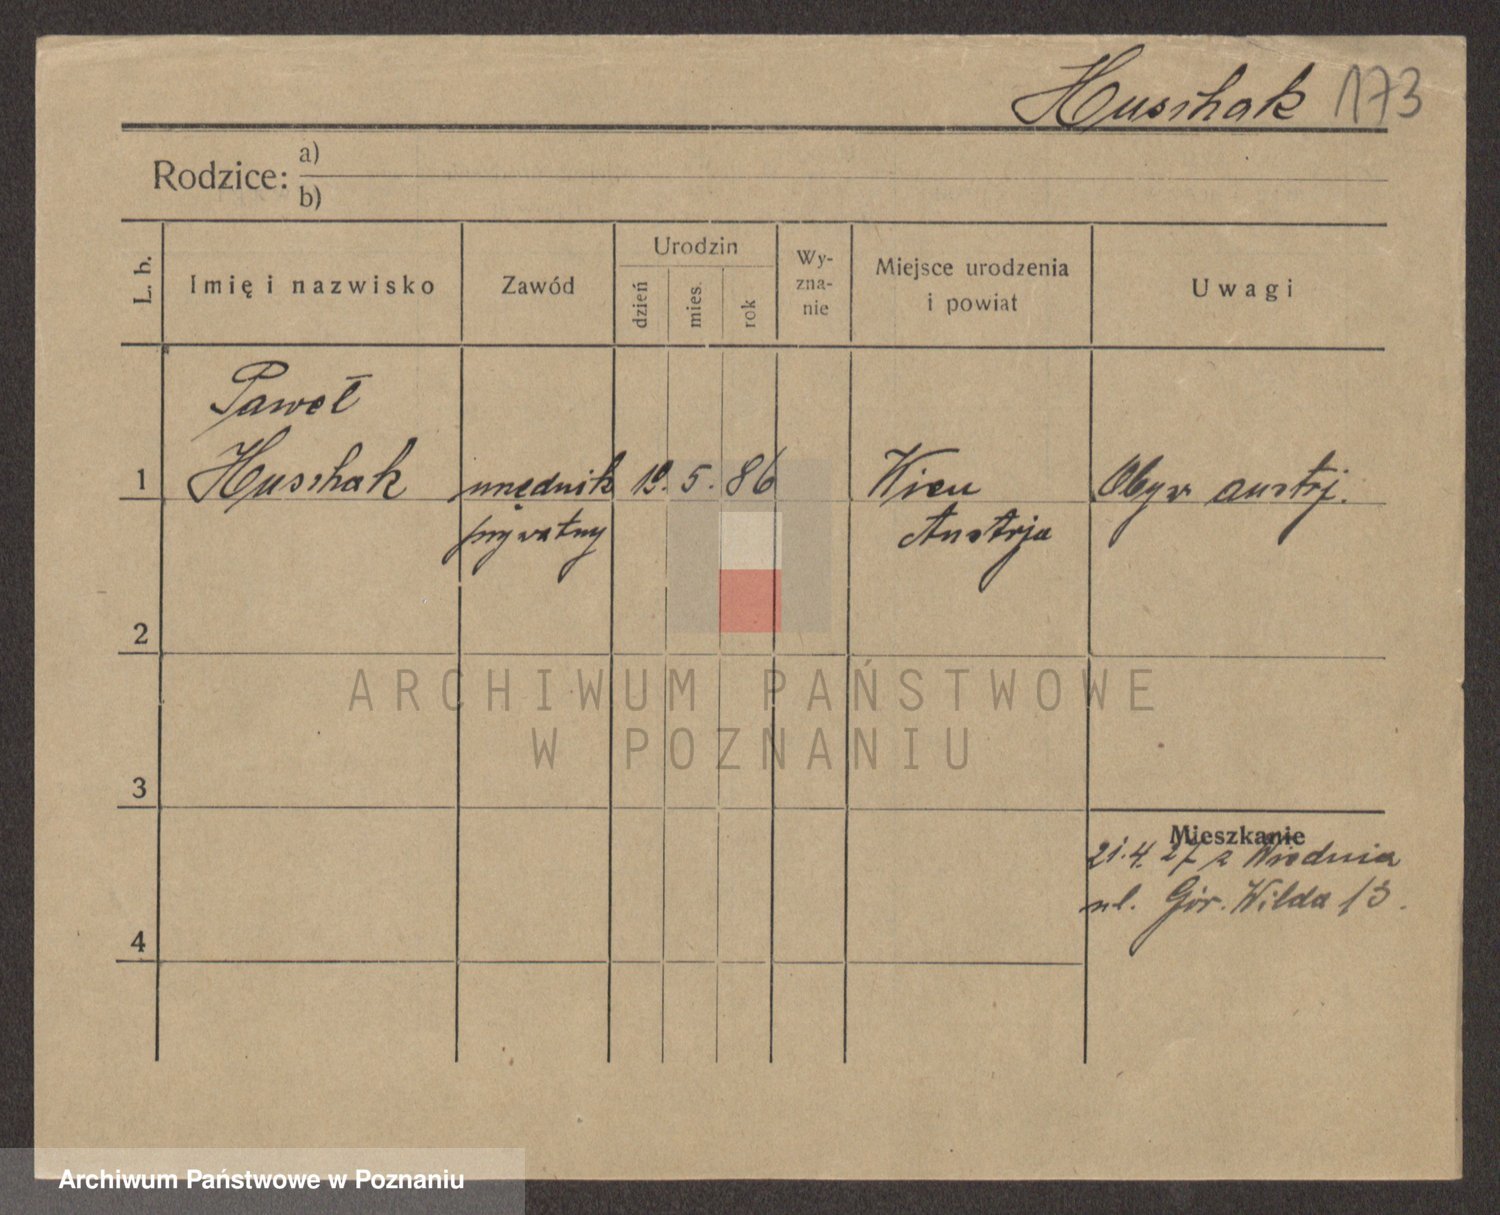 Husshak 173
Rodzice:
a)
b)
L. b.
Imię i nazwisko
Zawód
Urodzin
dzień
mies.
rok
Wy-
zna-
nie
Miejsce urodzenia
i powiat
Uwagi
Paweł
1 Husshak urzędnik 19. 5. 86 Wien Obyw austrj.
prywatny Austrja
2
3
4
Mieszkanie
21.4.27 z Wiednia
ul. Gór. Wilda 13.
ARCHIWUM PAŃSTWOWE
W POZNANIU
Archiwum Państwowe w Poznaniu